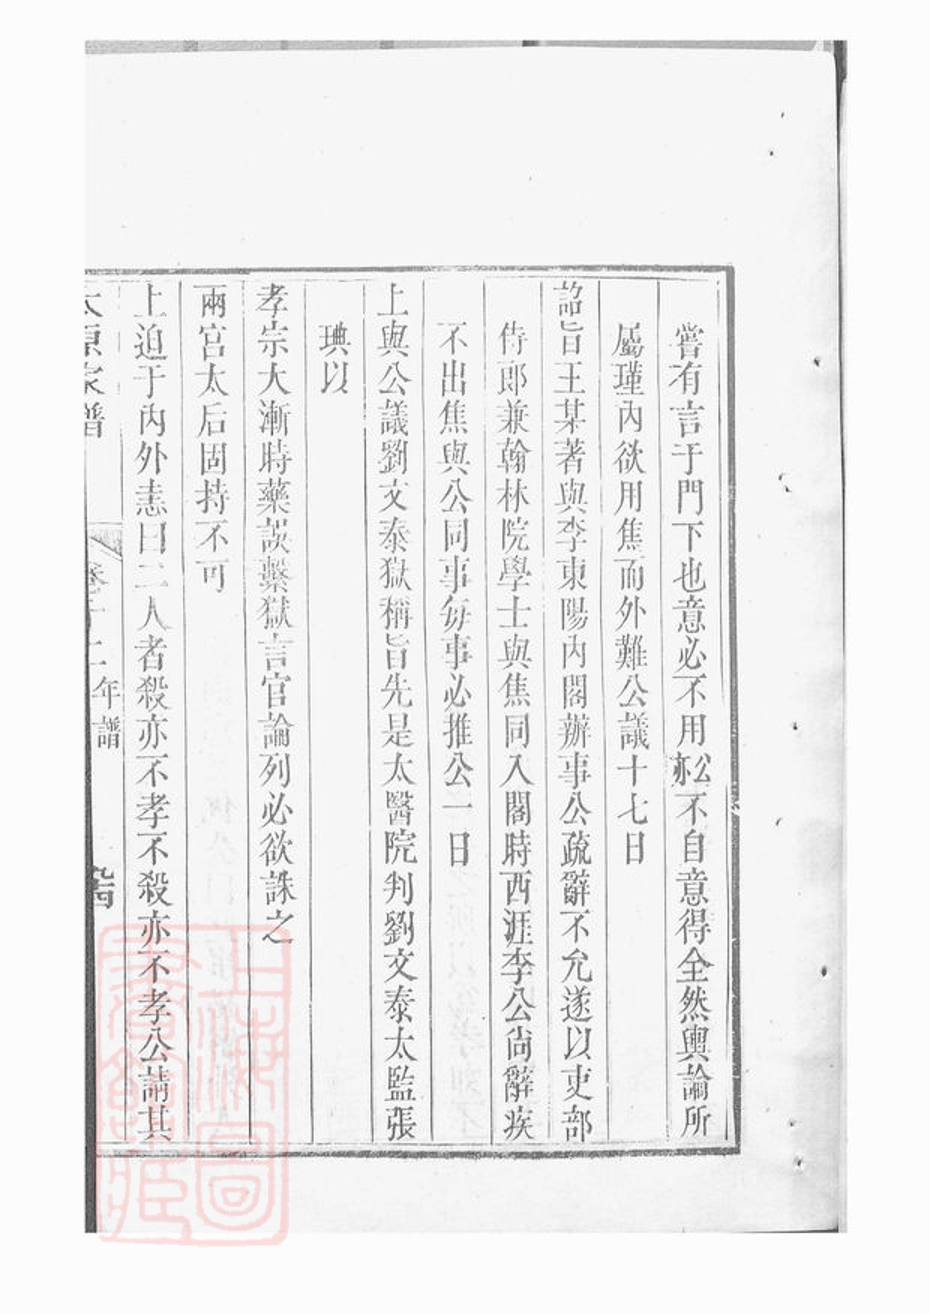 嘗有言于門下也意必不用公亦不自意得全然輿論所
屬瑾內欲用焦而外難公議十七日
詔旨王某著與李東陽內閣辦事公疏辭不允遂以吏部
侍郎兼翰林院學士與焦同入閣時西涯李公尙辭疾
不出焦與公同事每事必推公一日
上與公議劉文泰獄稱旨先是太醫院判劉文泰太監張
㻂以
孝宗大漸時藥誤繫獄言官論列必欲誅之
兩宮太后固持不可
上迫于內外恚曰二人者殺亦不孝不殺亦不孝公請其
太原家譜 卷十二 年譜
上海圖書館藏